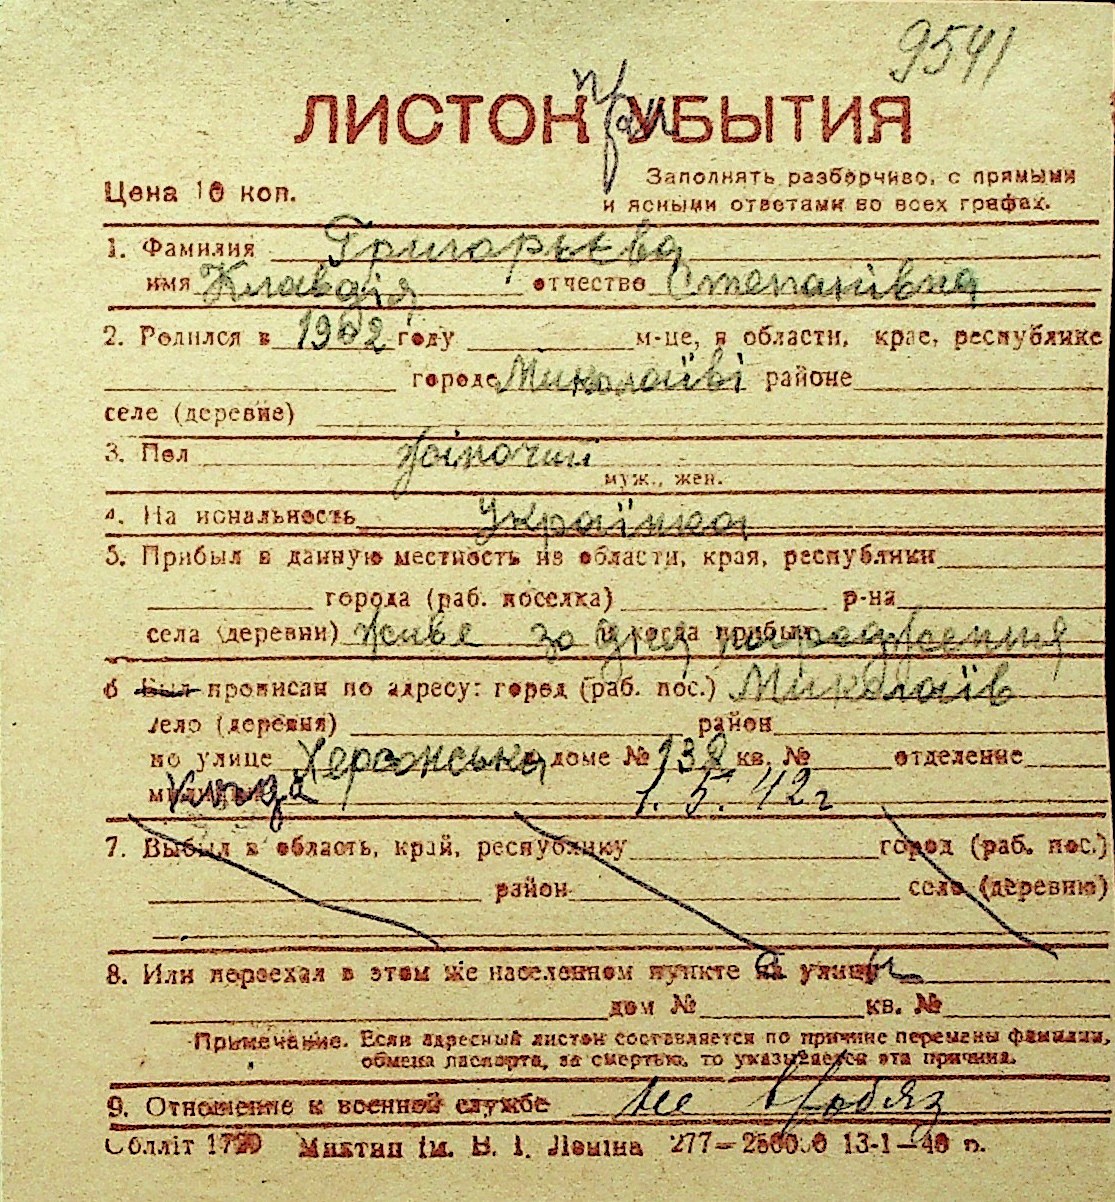 9541
ЛИСТОК УБЫТИЯ
Цена 10 коп.
Заполнять разборчиво, с прямыми
и ясными ответами во всех графах.
1. Фамилия Григорьева
имя Клавдія отчество Степанівна
2. Родился в 1902 году м-це, в области, крае, республике
городе Миколаїві районе
селе (деревне)
3. Пол жіночий
муж., жен.
4. На иональность Українка
5. Прибыл в данную местность из области, края, республики
города (раб. поселка) р-на
села (деревни) живе з дня народження и когда прибыл
6 Был прописан по адресу: город (раб. пос.) Миколаїв
село (деревня) район
по улице Херсонська доме № 138 кв. № отделение
1. 5. 42 г
7. Выбыл в область, край, республику город (раб. пос.)
район село (деревню)
8. Или переехал в этом же населенном пункте на улицу
дом № кв. №
Примечание. Если адресный листок составляется по причине перемены фамилии,
обмена паспорта, за смертью, то указывается эта причина.
9. Отношение к военной службе не
Облліт 1790 Миктип ім. В. І. Леніна 277—250000 13-1—40 р.